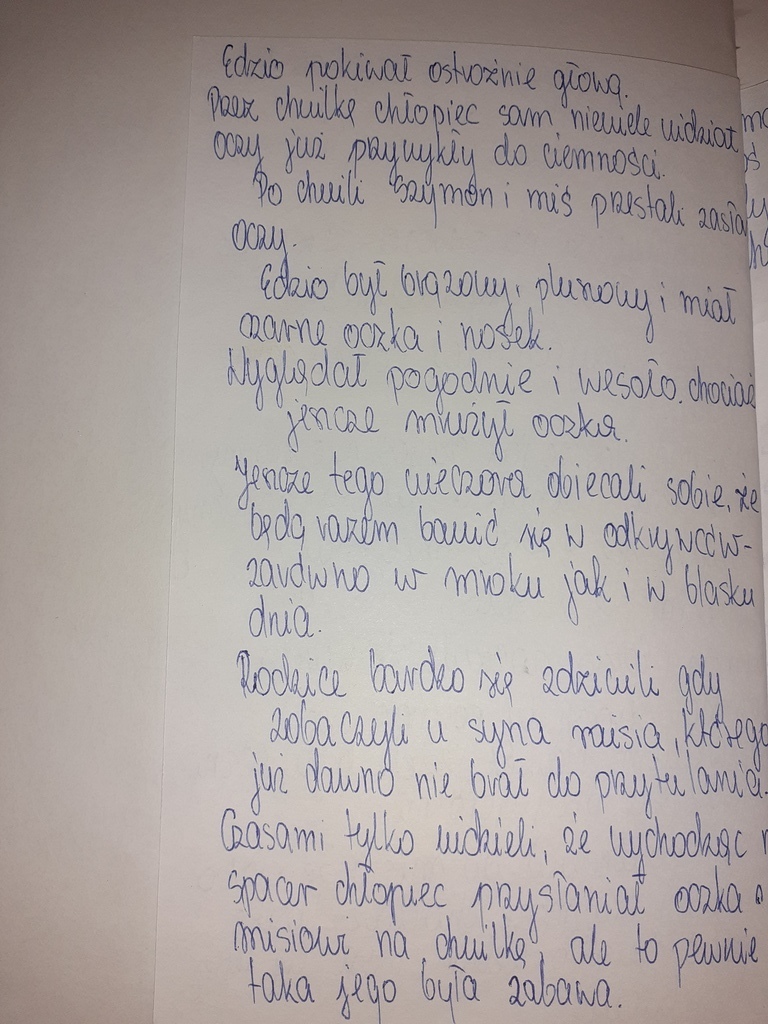 Edzio pokiwał ostrożnie głową.
Przez chwilkę chłopiec sam niewiele widział
oczy już przywykły do ciemności.
Po chwili Szymon i miś przestali zasła
oczy.
Edzio był brązowy, pluszowy i miał
czarne oczka i nosek.
Wyglądał pogodnie i wesoło, chociaż
jeszcze mrużył oczka.
Jeszcze tego wieczora obiecali sobie, że
będą razem bawić się w odkrywców-
zarówno w mroku jak i w blasku
dnia.
Rodzice bardzo się zdziwili gdy
zobaczyli u syna misia, którego
już dawno nie brał do przytulania.
Czasami tylko widzieli, że wychodząc n
spacer chłopiec przysłaniał oczka
misiowi na chwilkę, ale to pewnie
taka jego była zabawa.